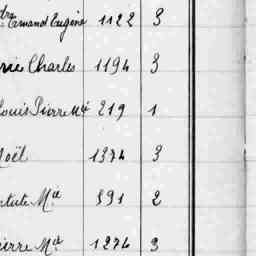 dre Ernand Eugène 1122 3
rie Charles 1194 3
Louis Pierre Mie 219 1
Noël 1374 3
Mie 591 2
ierre Mie 1274 3